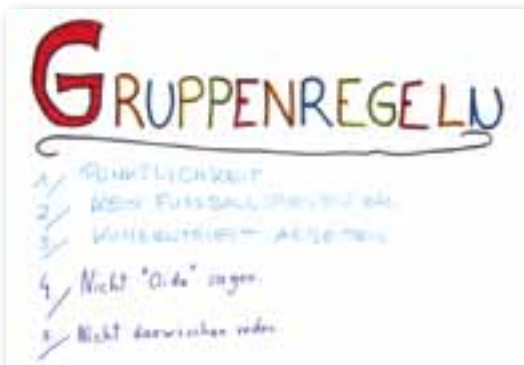 GRUPPENREGELN
1/ PÜNKTLICHKEIT
2/ KEIN FUSSBALLSPIELEN
3/ KONZENTRIERT ARBEITEN
4/ Nicht "Oida" sagen.
5/ Nicht dazwischen reden